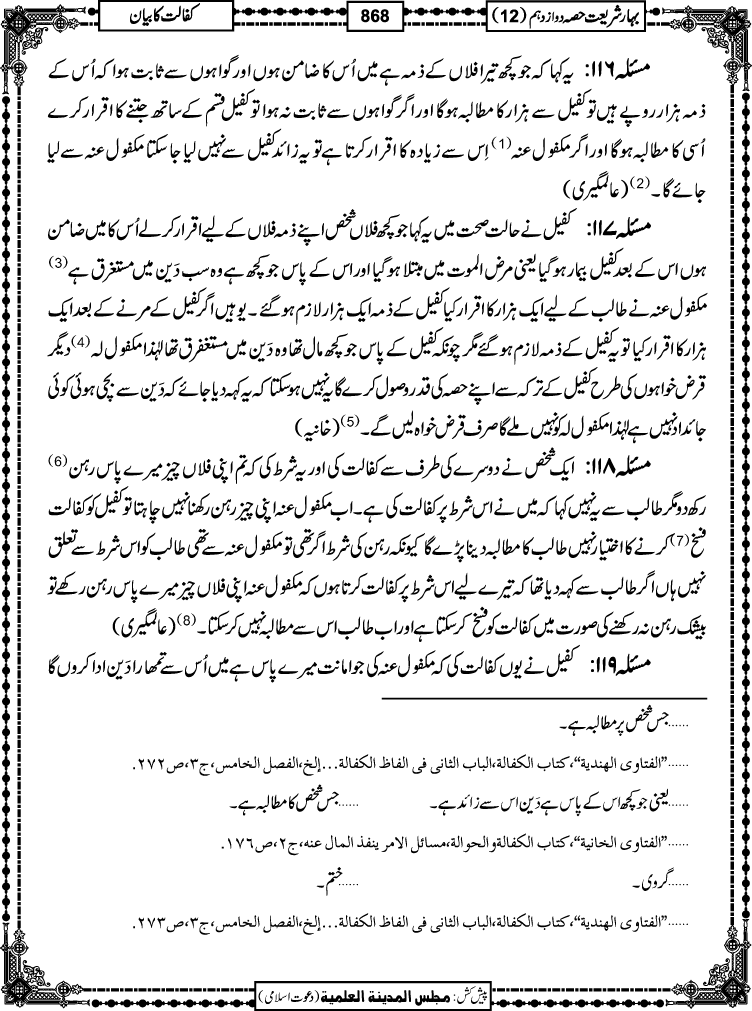 بہار شریعت حصہ دوازدہم (12)
868
کفالت کا بیان
مسئلہ ۱۱۶: یہ کہا کہ جو کچھ تیرا فلاں کے ذمہ ہے میں اُس کا ضامن ہوں اور گواہوں سے ثابت ہوا کہ اُس کے
ذمہ ہزار روپے ہیں تو کفیل سے ہزار کا مطالبہ ہوگا اور اگر گواہوں سے ثابت نہ ہوا تو کفیل قسم کے ساتھ جتنے کا اقرار کرے
اُسی کا مطالبہ ہوگا اور اگر مکفول عنہ (1) اِس سے زیادہ کا اقرار کرتا ہے تو یہ زائد کفیل سے نہیں لیا جاسکتا مکفول عنہ سے لیا
جائے گا۔ (2) (عالمگیری)
مسئلہ ۱۱۷: کفیل نے حالت صحت میں یہ کہا جو کچھ فلاں شخص اپنے ذمہ فلاں کے لیے اقرار کرلے اُس کا میں ضامن
ہوں اس کے بعد کفیل بیمار ہوگیا یعنی مرض الموت میں مبتلا ہوگیا اور اس کے پاس جو کچھ ہے وہ سب دَین میں مستغرق ہے (3)
مکفول عنہ نے طالب کے لیے ایک ہزار کا اقرار کیا کفیل کے ذمہ ایک ہزار لازم ہوگئے۔ یوہیں اگر کفیل کے مرنے کے بعد ایک
ہزار کا اقرار کیا تو یہ کفیل کے ذمہ لازم ہوگئے مگر چونکہ کفیل کے پاس جو کچھ مال تھا وہ دَین میں مستغرق تھا لہٰذا مکفول لہ (4) دیگر
قرض خواہوں کی طرح کفیل کے ترکہ سے اپنے حصہ کی قدر وصول کرے گا یہ نہیں ہوسکتا کہ یہ کہہ دیا جائے کہ دَین سے بچی ہوئی کوئی
جائداد نہیں ہے لہٰذا مکفول لہ کو نہیں ملے گا صرف قرض خواہ لیں گے۔ (5) (خانیہ)
مسئلہ ۱۱۸: ایک شخص نے دوسرے کی طرف سے کفالت کی اور یہ شرط کی کہ تم اپنی فلاں چیز میرے پاس رہن (6)
رکھ دو مگر طالب سے یہ نہیں کہا کہ میں نے اس شرط پر کفالت کی ہے۔ اب مکفول عنہ اپنی چیز رہن رکھنا نہیں چاہتا تو کفیل کو کفالت
فسخ (7) کرنے کا اختیار نہیں طالب کا مطالبہ دینا پڑے گا کیونکہ رہن کی شرط اگر تھی تو مکفول عنہ سے تھی طالب کو اس شرط سے تعلق
نہیں ہاں اگر طالب سے کہہ دیا تھا کہ تیرے لیے اس شرط پر کفالت کرتا ہوں کہ مکفول عنہ اپنی فلاں چیز میرے پاس رہن رکھے تو
بیشک رہن نہ رکھنے کی صورت میں کفالت کو فسخ کرسکتا ہے اور اب طالب اس سے مطالبہ نہیں کرسکتا۔ (8) (عالمگیری)
مسئلہ ۱۱۹: کفیل نے یوں کفالت کی کہ مکفول عنہ کی جو امانت میرے پاس ہے میں اُس سے تمہارا دَین ادا کروں گا
......جس شخص پر مطالبہ ہے۔
......”الفتاوی الهندیة“، کتاب الکفالة، الباب الثانی فی الفاظ الکفالة...إلخ، الفصل الخامس، ج۳، ص۲۷۲.
......یعنی جو کچھ اس کے پاس ہے دَین اس سے زائد ہے۔ ......جس شخص کا مطالبہ ہے۔
......”الفتاوی الخانیة“، کتاب الکفالة والحوالة، مسائل الامر ینفذ المال عنه، ج۲، ص۱۷۶.
......گروی۔ ......ختم۔
......”الفتاوی الهندیة“، کتاب الکفالة، الباب الثانی فی الفاظ الکفالة...إلخ، الفصل الخامس، ج۳، ص۲۷۳.
پیش کش: مجلس المدینة العلمیة (دعوت اسلامی)